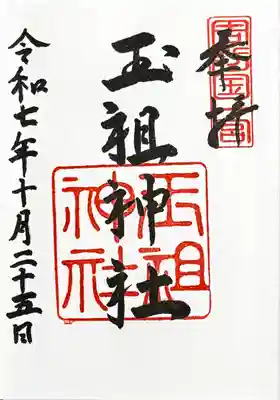 奉拝
玉祖神社
玉祖神社
令和七年十月二十五日